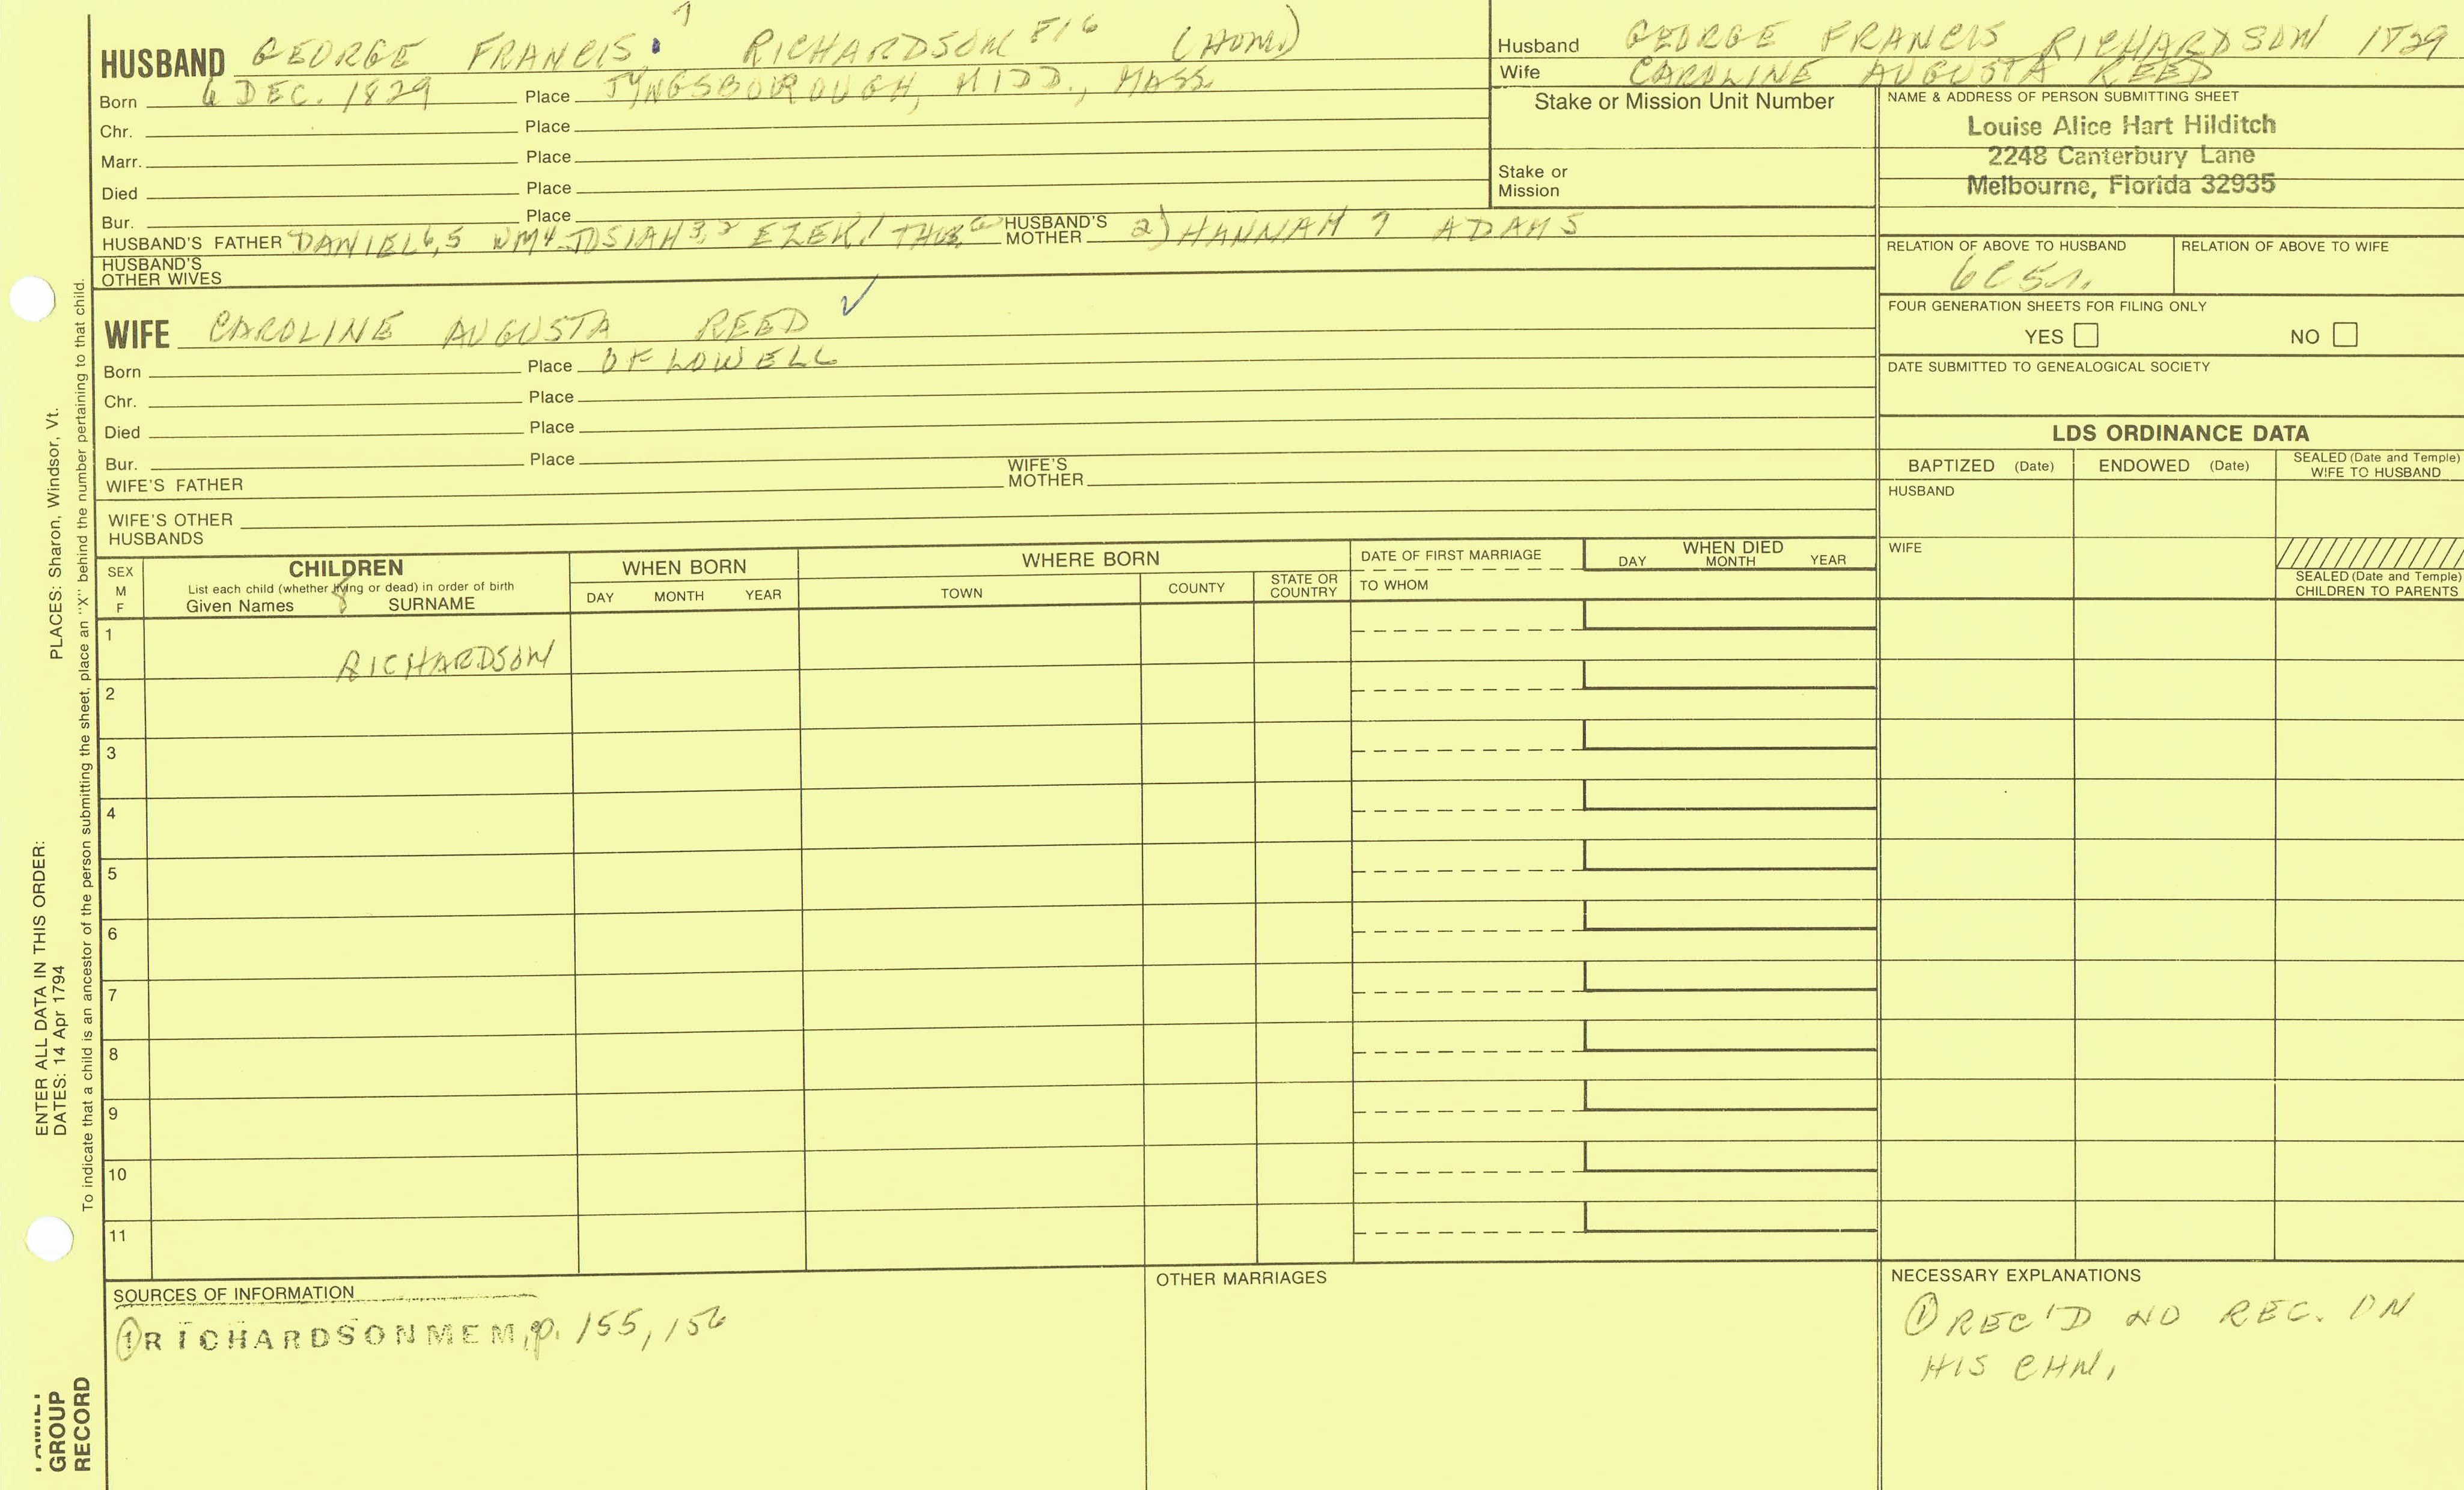 HUSBAND GEORGE FRANCIS RICHARDSON (HOM.)
Born 6 DEC. 1829 Place TYNGSBOROUGH, MIDD., MASS.
Chr. Place
Marr. Place
Died Place
Bur. Place
HUSBAND'S FATHER DANIEL 6,5 WM4 JOSIAH 3,2 EZEK.1 HUSBAND'S MOTHER 2) HANNAH ADAMS
HUSBAND'S OTHER WIVES
WIFE CAROLINE AUGUSTA REED ✓
Born Place OF LOWELL
Chr. Place
Died Place
Bur. Place
WIFE'S FATHER WIFE'S MOTHER
WIFE'S OTHER HUSBANDS
Husband GEORGE FRANCIS RICHARDSON 1829
Wife CAROLINE AUGUSTA REED
Stake or Mission Unit Number
Stake or Mission
NAME & ADDRESS OF PERSON SUBMITTING SHEET
Louise Alice Hart Hilditch
2248 Canterbury Lane
Melbourne, Florida 32935
RELATION OF ABOVE TO HUSBAND RELATION OF ABOVE TO WIFE
6C5r.
FOUR GENERATION SHEETS FOR FILING ONLY
YES NO
DATE SUBMITTED TO GENEALOGICAL SOCIETY
LDS ORDINANCE DATA
BAPTIZED (Date) ENDOWED (Date) SEALED (Date and Temple) WIFE TO HUSBAND
HUSBAND
WIFE
SEALED (Date and Temple) CHILDREN TO PARENTS
SEX M F
CHILDREN
List each child (whether living or dead) in order of birth
Given Names SURNAME
WHEN BORN
DAY MONTH YEAR
WHERE BORN
TOWN COUNTY STATE OR COUNTRY
DATE OF FIRST MARRIAGE
TO WHOM
WHEN DIED
DAY MONTH YEAR
1 RICHARDSON
2
3
4
5
6
7
8
9
10
11
SOURCES OF INFORMATION
① RICHARDSON MEM, p. 155, 156
OTHER MARRIAGES
NECESSARY EXPLANATIONS
① REC'D NO REC. ON
HIS CHN.
ENTER ALL DATA IN THIS ORDER:
DATES: 14 Apr 1794 PLACES: Sharon, Windsor, Vt.
To indicate that a child is an ancestor of the person submitting the sheet, place an "X" behind the number pertaining to that child.
FAMILY
GROUP
RECORD